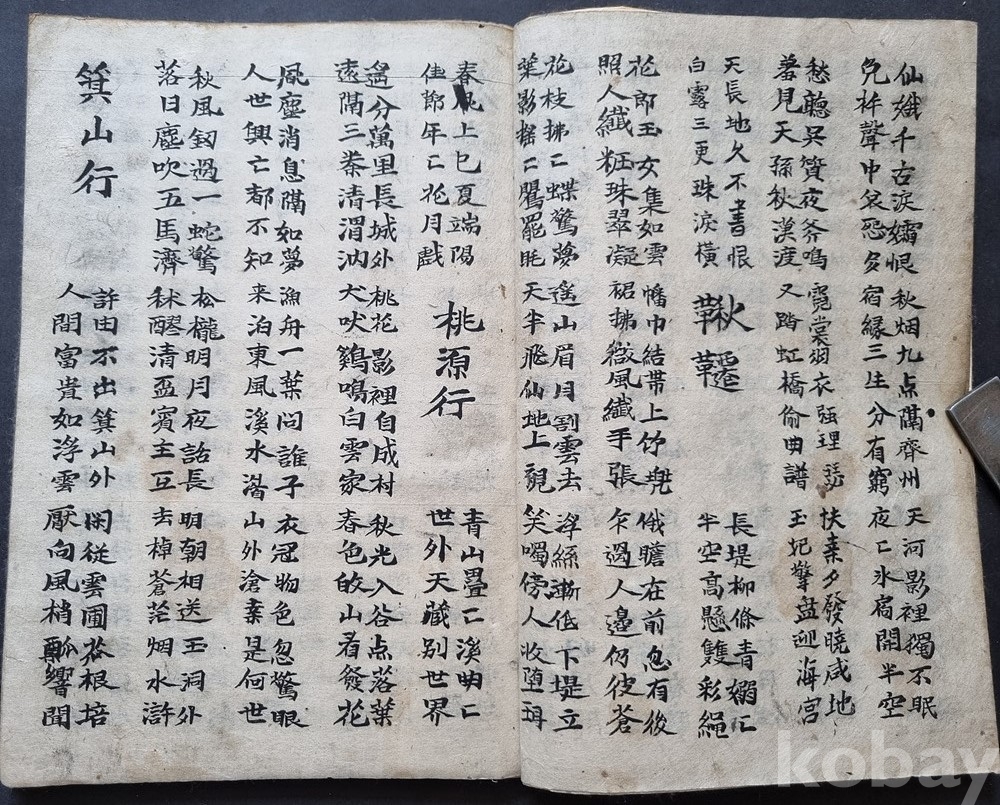 仙娥千古淚孀恨 秋烟九点隔齊州 天河影裡獨不眠
兔杵聲中哀怨多 宿緣三生分有窮 夜〻氷宿開半空
愁聽吳質夜斧鳴 霓裳羽衣强理瑟 扶桑夕發曉咸池
暮見天孫秋漢渡 又踏虹橋偷曲譜 玉妃擎盘迎海宮
天長地久不書恨
白露三更珠淚橫
鞦韆
長堤柳條青嫋〻
半空高懸雙彩繩
花郎玉女集如雲 幡巾結帶上竹 俄瞻在前忽有後
照人纖粧珠翠凝 裙拂微風纖手張 乍過人邉仍彼蒼
花枝拂〻蝶驚夢 遙山眉月割雲去 浮絲漸低下堤立
葉影摇〻鸎罷眠 天半飛仙地上 笑囑傍人收堕珥
春風上巳夏端陽
佳節年〻花月戲
桃源行
青山疊〻溪曲〻
世外天藏別世界
遙分萬里長城外 桃花影裡自成村 秋光入谷点落葉
遠隔三秦清渭汭 犬吠鷄鳴白雲家 春色的山看發花
風塵消息隔如夢 漁舟一葉問誰子 衣冠物色忽驚眼
人世興亡都不知 来泊東風溪水 山外滄桑是何世
秋風釰過一蛇驚 松櫳明月夜話長 明朝相送玉洞外
落日塵吹五馬濟 秫醪清盃賓主互 去棹蒼茫烟水滸
箕山行
許由不出箕山外 閑從雲圃根培
人間富貴如浮雲 厭向風梢瓢響聞
kobay